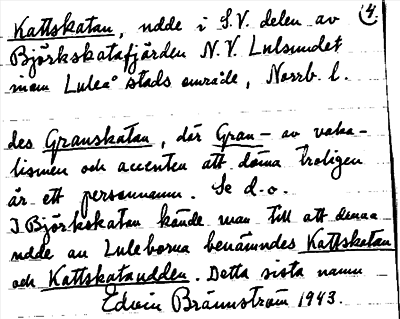 4.
Kattskatan, udde i S.V. delen av
Björkskatafjärden N.V. Lulsundet
inom Luleå stads område, Norrb. l.
des Granskatan, där Gran- av voka-
lismen och accenten att döma troligen
är ett personnamn. Se d.o.
I Björkskatan kände man till att denna
udde av Luleborna benämndes Kattskatan
och Kattskataudden. Detta sista namn
Edvin Brännström 1943.